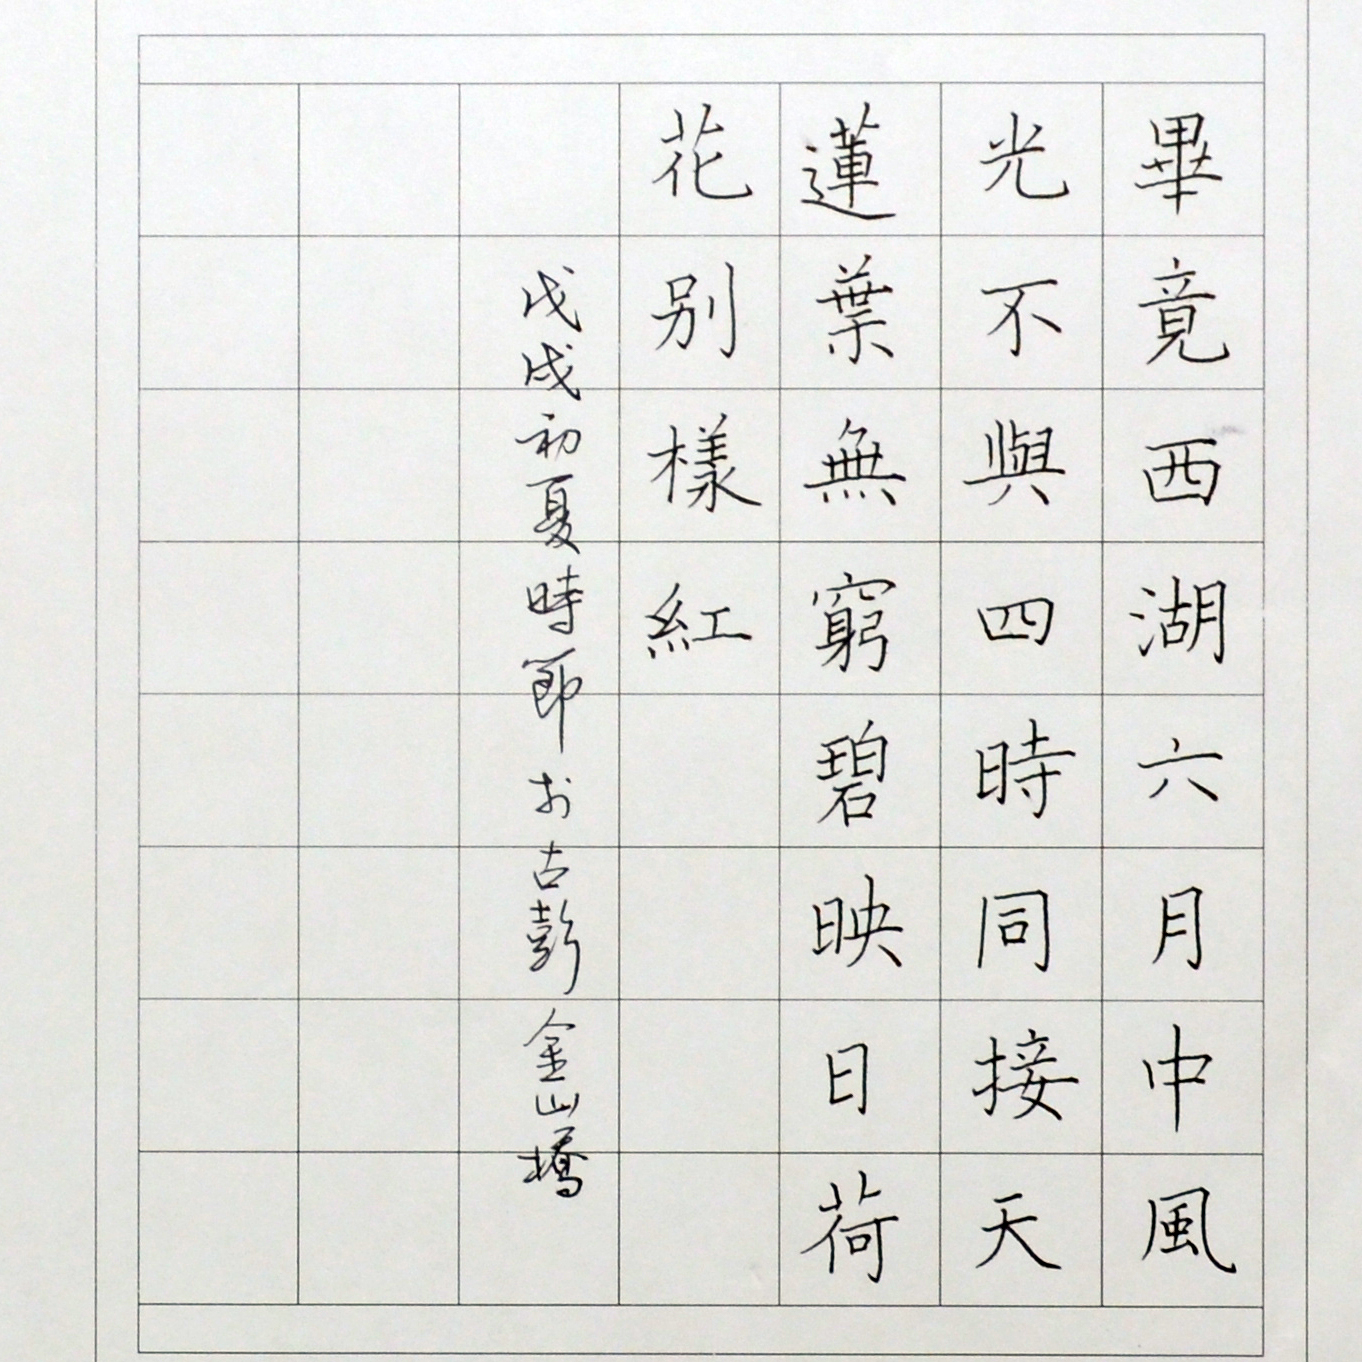 畢竟西湖六月中風
光不與四時同接天
蓮葉無窮碧映日荷
花别樣紅
戊戌初夏時節於古彭金山橋